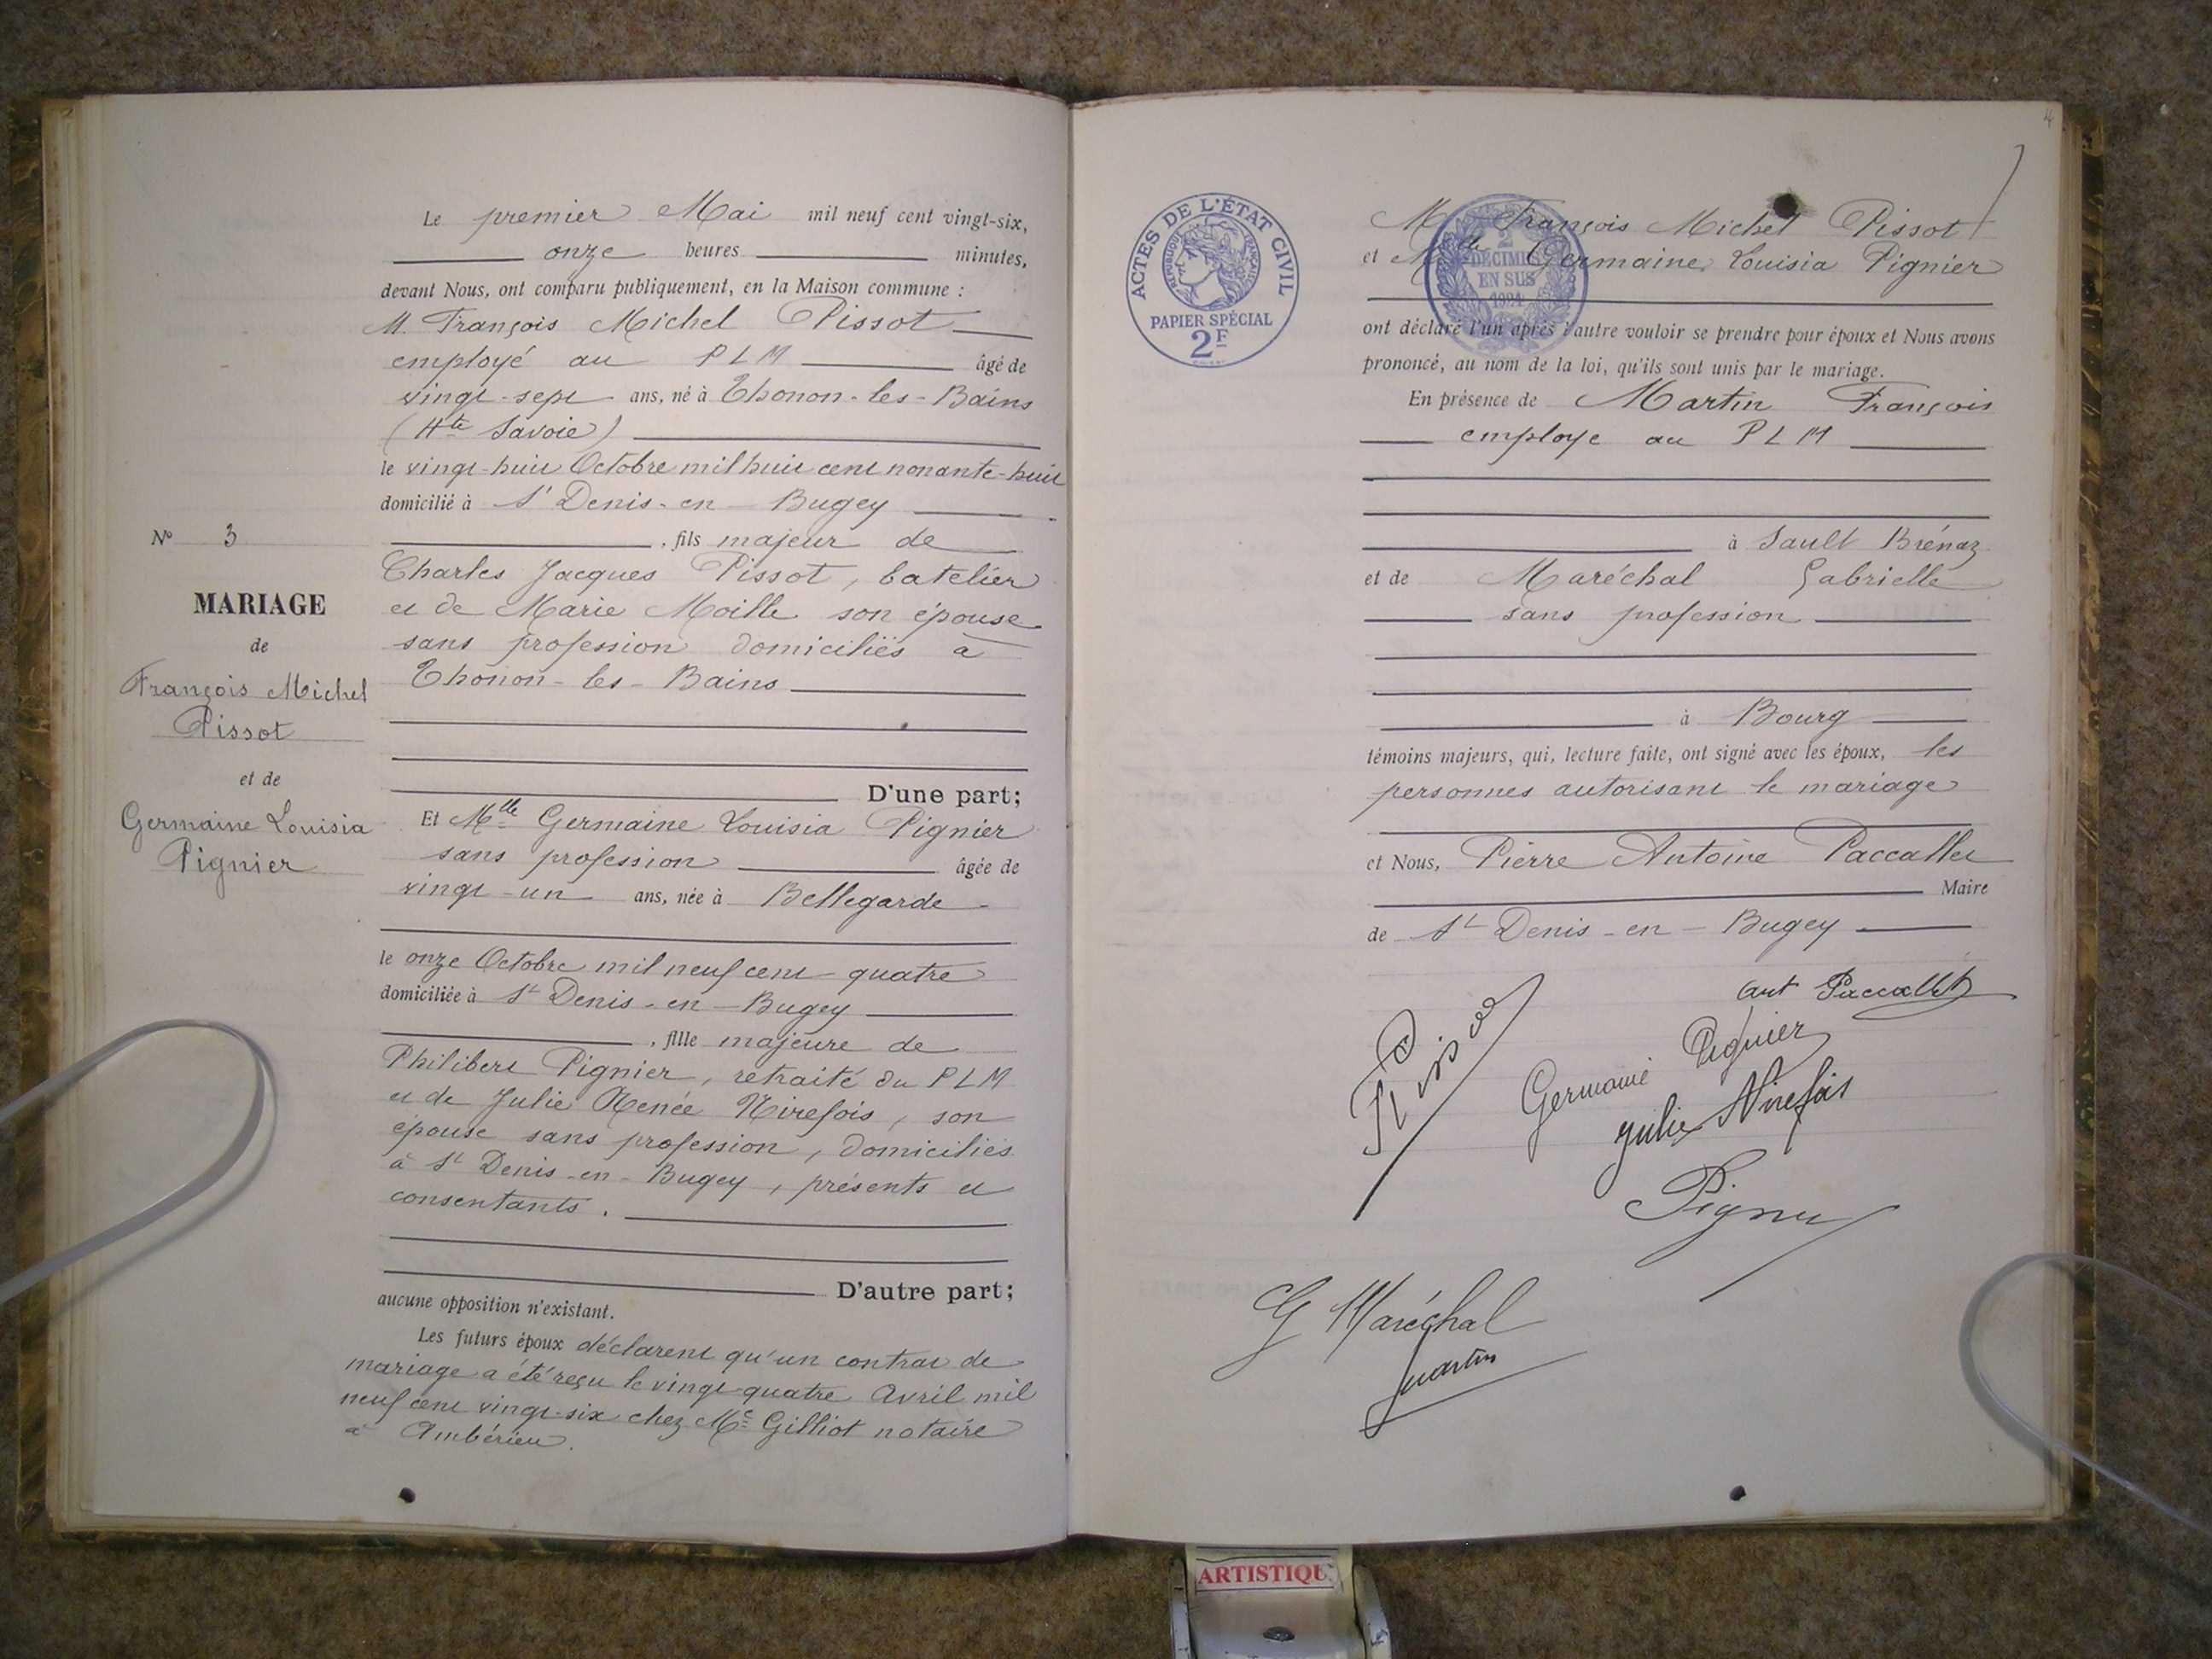 Le premier Mai mil neuf cent vingt-six,
onze heures minutes,
devant Nous, ont comparu publiquement, en la Maison commune :
M. François Michel Pissot
employé au PLM âgé de
vingt-sept ans, né à Thonon-les-Bains
(Hte Savoie)
le vingt-huit Octobre mil huit cent nonante-huit
domicilié à St Denis-en-Bugey
, fils majeur de
Charles Jacques Pissot, batelier
et de Marie Moille son épouse
sans profession domiciliés à
Thonon-les-Bains
D'une part;
Et Mlle Germaine Louisia Pignier
sans profession âgée de
vingt-un ans, née à Bellegarde
le onze Octobre mil neuf cent quatre
domiciliée à St Denis-en-Bugey
, fille majeure de
Philibert Pignier, retraité du PLM
et de Julie Renée Nirefois, son
épouse sans profession, domiciliés
à St Denis-en-Bugey, présents et
consentants.
D'autre part;
aucune opposition n'existant.
Les futurs époux déclarent qu'un contrat de
mariage a été reçu le vingt-quatre Avril mil
neuf cent vingt-six chez Me Gilliot notaire
à Ambérieu.
No 3
MARIAGE
de
François Michel
Pissot
et de
Germaine Louisia
Pignier
4
ACTES DE L'ÉTAT CIVIL
RÉPUBLIQUE FRANÇAISE
PAPIER SPÉCIAL
2F
2
DÉCIMES
EN SUS
1924
M François Michel Pissot
et Mlle Germaine Louisia Pignier
ont déclaré l'un après l'autre vouloir se prendre pour époux et Nous avons
prononcé, au nom de la loi, qu'ils sont unis par le mariage.
En présence de Martin François
employe au PLM
à Sault Brénaz
et de Maréchal Gabrielle
sans profession
à Bourg
témoins majeurs, qui, lecture faite, ont signé avec les époux, les
personnes autorisant le mariage
et Nous, Pierre Antoine Paccallet
Maire
de St Denis-en-Bugey
Ant Paccallet
Germaine Pignier
Julie Nirefois
Pignier
G Maréchal
Martin
ARTISTIQU